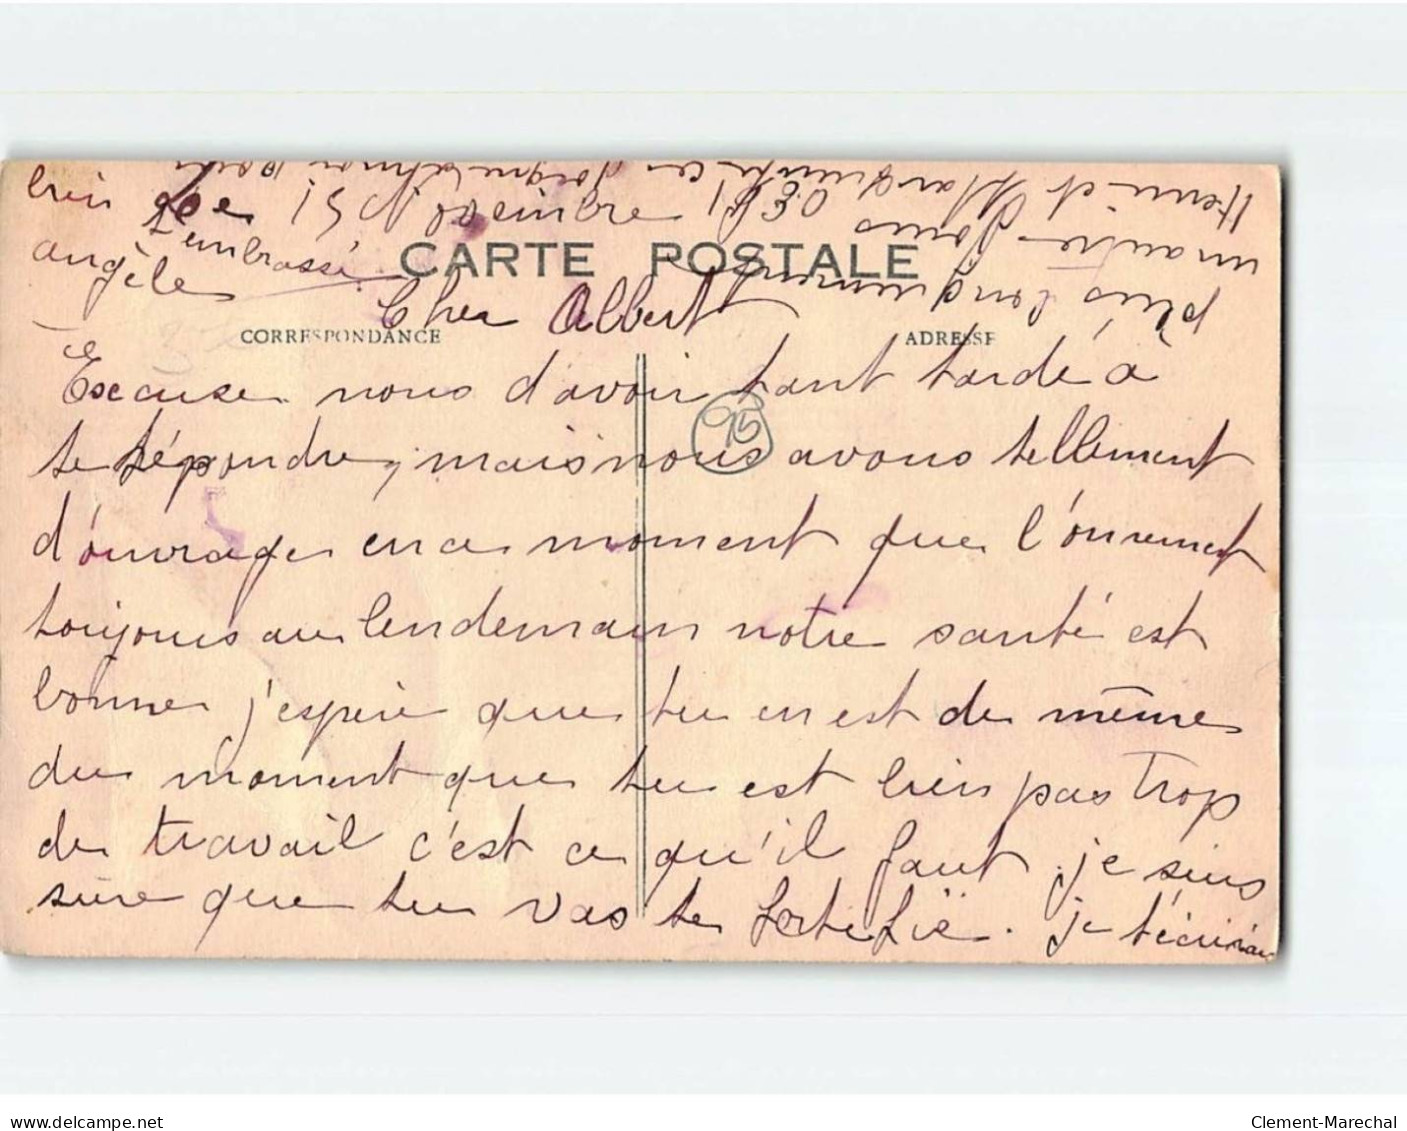 Le 15 Novembre 1931
CARTE POSTALE
Cher Albert
CORRESPONDANCE
ADRESSE
95
Excuse nous d'avoir tant tardé à
te répondre, mais nous avons tellement
d'ouvrage en ce moment que l'ouvrement
toujours au lendemain notre santé est
bonne j'espère que tu en est de même
du moment que tu est bien pas trop
de travail c'est ce qu'il faut. je suis
sûre que tu vas te fortifié. je t'écrirai
plus longuement
un autre jour
Henri et Marguerite se joigne à moi pour
bien
t'embrassé
angèle
delcampe.net
Clement-Marechal